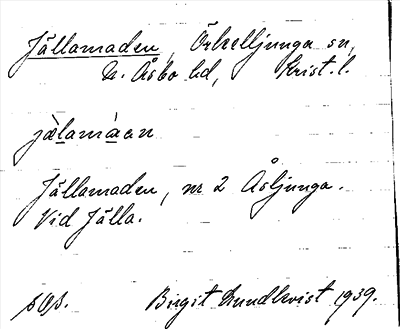 Jällamaden, Örkelljunga sn,
N. Åsbo hd, Krist. l.
jä̀lamàan
Jällamaden, nr 2 Åsljunga.
Vid Jälla.
Birgit Lundkvist 1939.